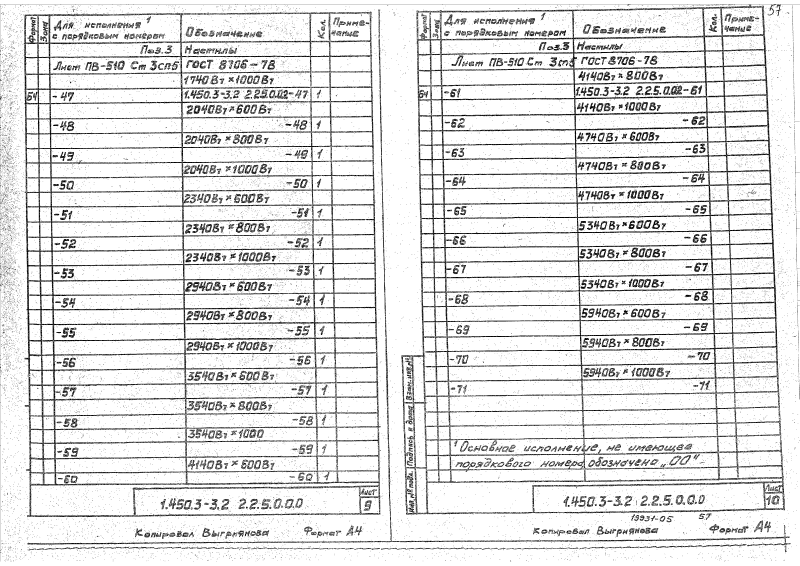 Формат
Зона
Для исполнения ¹ с порядковым номером
Обозначение
Кол.
Приме-чание
Поз.3 Настилы
Лист ПВ-510 Ст 3сп5 ГОСТ 8706-78
1740Вт×1000Вт
БЧ -47 1.450.3-3.2 2.2.5.0.02-47 1
2040Вт×600Вт
-48 -48 1
2040Вт×800Вт
-49 -49 1
2040Вт×1000Вт
-50 -50 1
2340Вт×600Вт
-51 -51 1
2340Вт×800Вт
-52 -52 1
2340Вт×1000Вт
-53 -53 1
2940Вт×600Вт
-54 -54 1
2940Вт×800Вт
-55 -55 1
2940Вт×1000Вт
-56 -56 1
3540Вт×600Вт
-57 -57 1
3540Вт×800Вт
-58 -58 1
3540Вт×1000
-59 -59 1
4140Вт×600Вт
-60 -60 1
1.450.3-3.2 2.2.5.0.0.0
Лист
9
Копировал Выгриянова Формат А4
57
Формат
Зона
Для исполнения ¹ с порядковым номером
Обозначение
Кол.
Приме-чание
Поз.3 Настилы
Лист ПВ-510 Ст 3сп5 ГОСТ 8706-78
4140Вт×800Вт
БЧ -61 1.450.3-3.2 2.2.5.0.02-61
4140Вт×1000Вт
-62 -62
4740Вт×600Вт
-63 -63
4740Вт×800Вт
-64 -64
4740Вт×1000Вт
-65 -65
5340Вт×600Вт
-66 -66
5340Вт×800Вт
-67 -67
5340Вт×1000Вт
-68 -68
5940Вт×600Вт
-69 -69
5940Вт×800Вт
-70 -70
5940Вт×1000Вт
-71 -71
¹ Основное исполнение, не имеющее
порядкового номера, обозначена „00"
Инв. № подл.
Подпись и дата
Взам. инв. №
1.450.3-3.2 2.2.5.0.0.0
Лист
10
19931-05 57
Копировал Выгриянова Формат А4